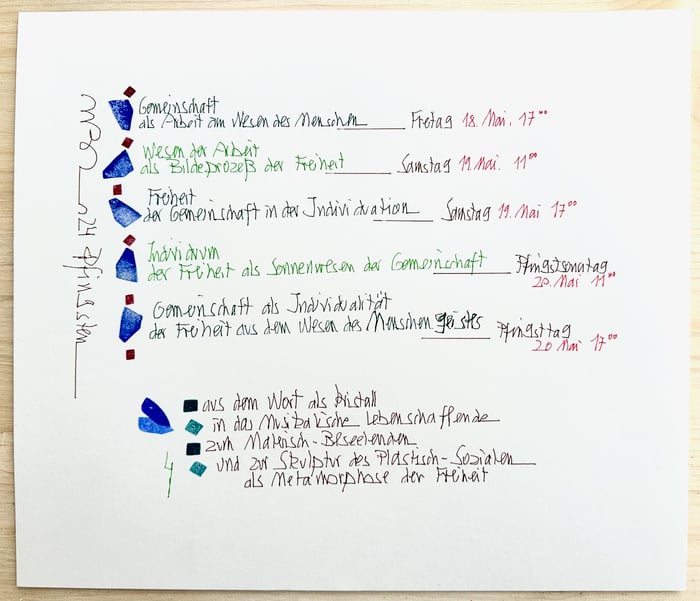 Gemeinschaft
als Arbeit am Wesen des Menschen Freitag 18. Mai. 17⁰⁰
Wesen der Arbeit
als Bildeprozeß der Freiheit Samstag 19. Mai. 11⁰⁰
Freiheit
der Gemeinschaft in der Individuation Samstag 19. Mai 17⁰⁰
Individuum
der Freiheit als Sonnenwesen der Gemeinschaft Pfingstsonntag
20. Mai 11⁰⁰
Gemeinschaft als Individualität
der Freiheit aus dem Wesen des Menschen geistes Pfingsttag
20 Mai 17⁰⁰
aus dem Wort als Kristall
in das Musikalische Lebenschaffende
zum Malerisch-Beseelenden
und zur Skulptur des Plastisch-Sozialen
als Metamorphose der Freiheit
24 Pfingsten